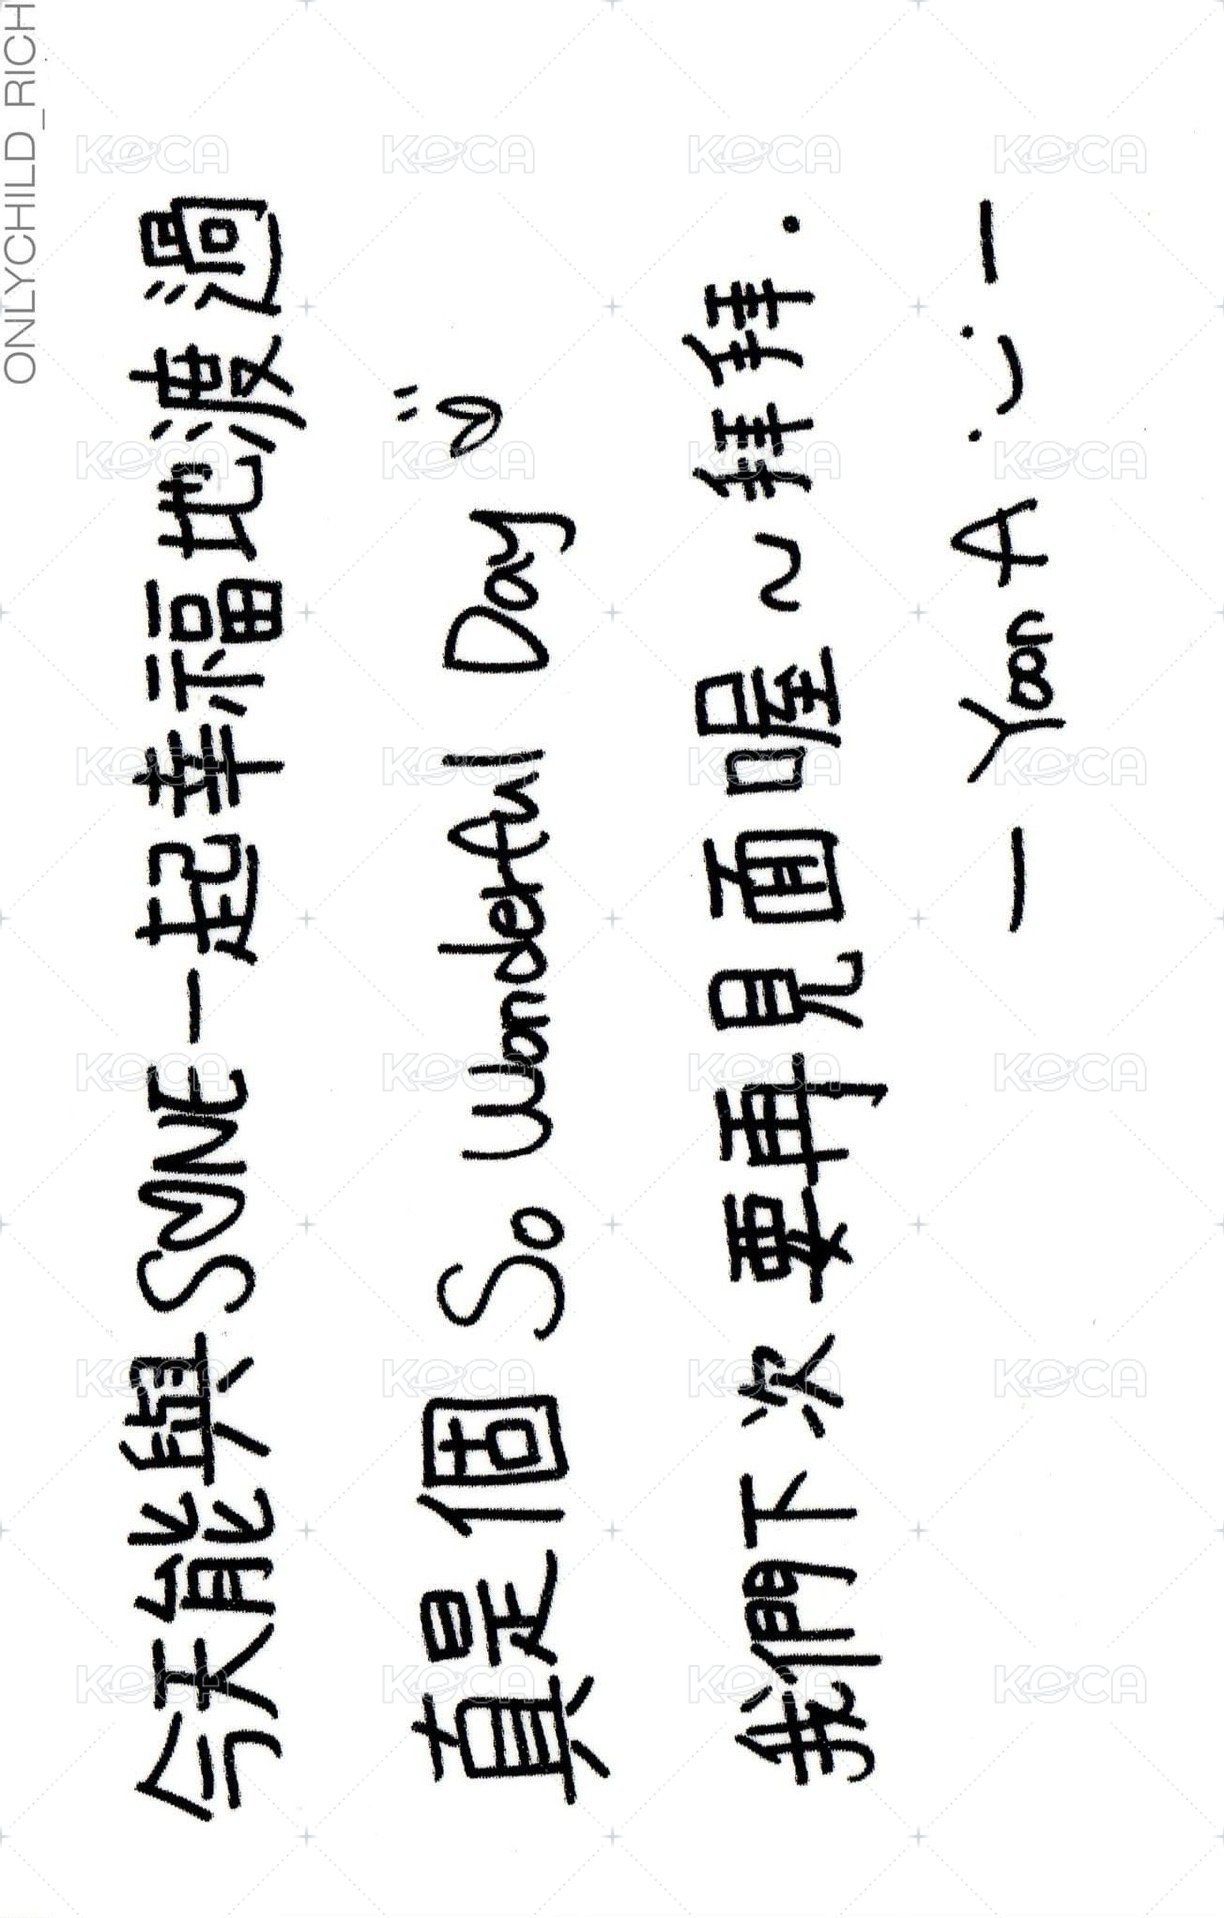 今天能與S♡NE一起幸福地渡過
真是個 So Wonderful Day
我們下次要再見面喔～拜拜.
— Yoon A —
ONLYCHILD_RICH
KOCA